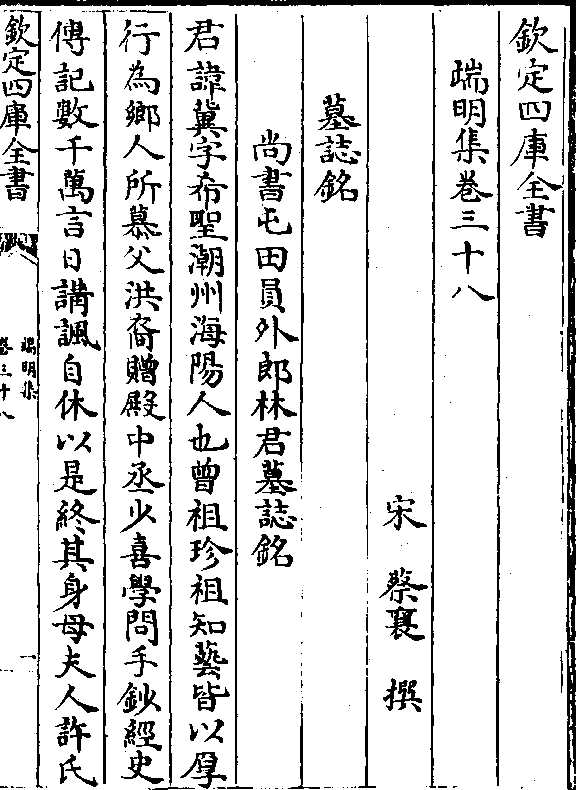 欽定四庫全書
端明集卷三十八
宋 蔡襄 撰
墓誌銘
尚書屯田員外郎林君墓誌銘
君諱冀字希聖潮州海陽人也曾祖珍祖知藝皆以厚
行為鄉人所慕父洪裔贈殿中丞少喜學問手鈔經史
傳記數千萬言日講諷自休以是終其身母夫人許氏
欽定四庫全書
端明集
卷三十八